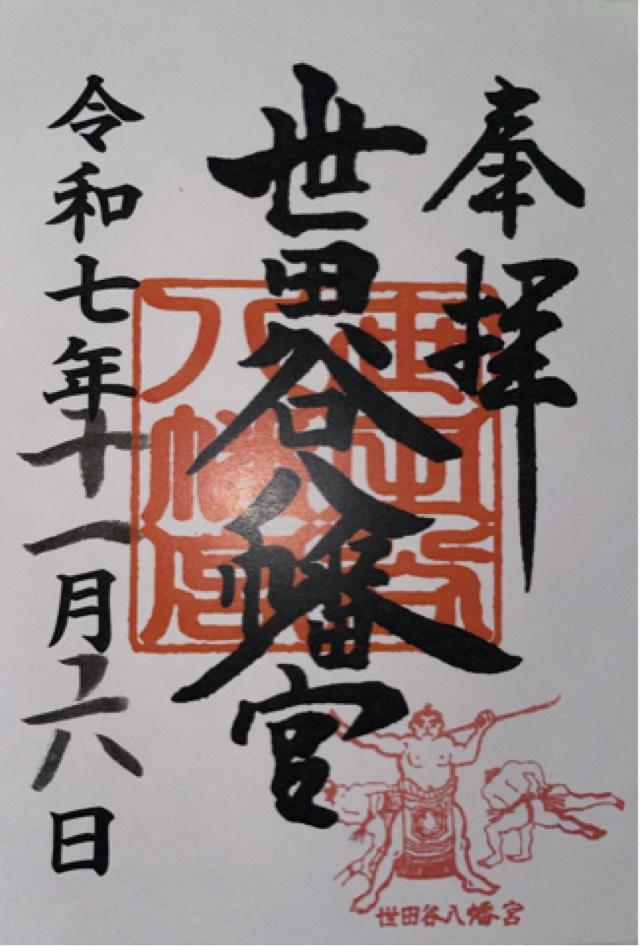 奉拝
世田谷八幡宮
世田谷
八幡宮
令和七年十一月 日
世田谷八幡宮